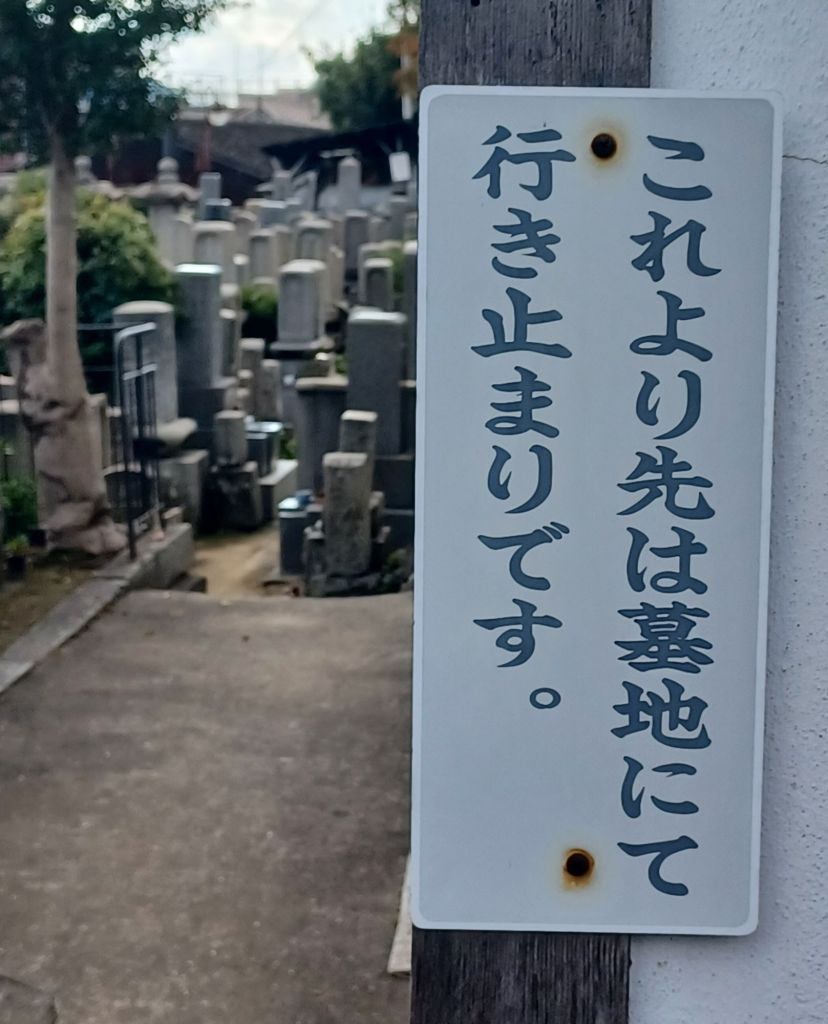 これより先は墓地にて
行き止まりです。